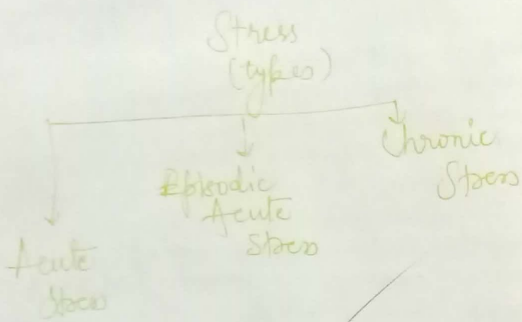 Stress
(types)
Acute
Stress
Episodic
Acute
Stress
Chronic
Stress